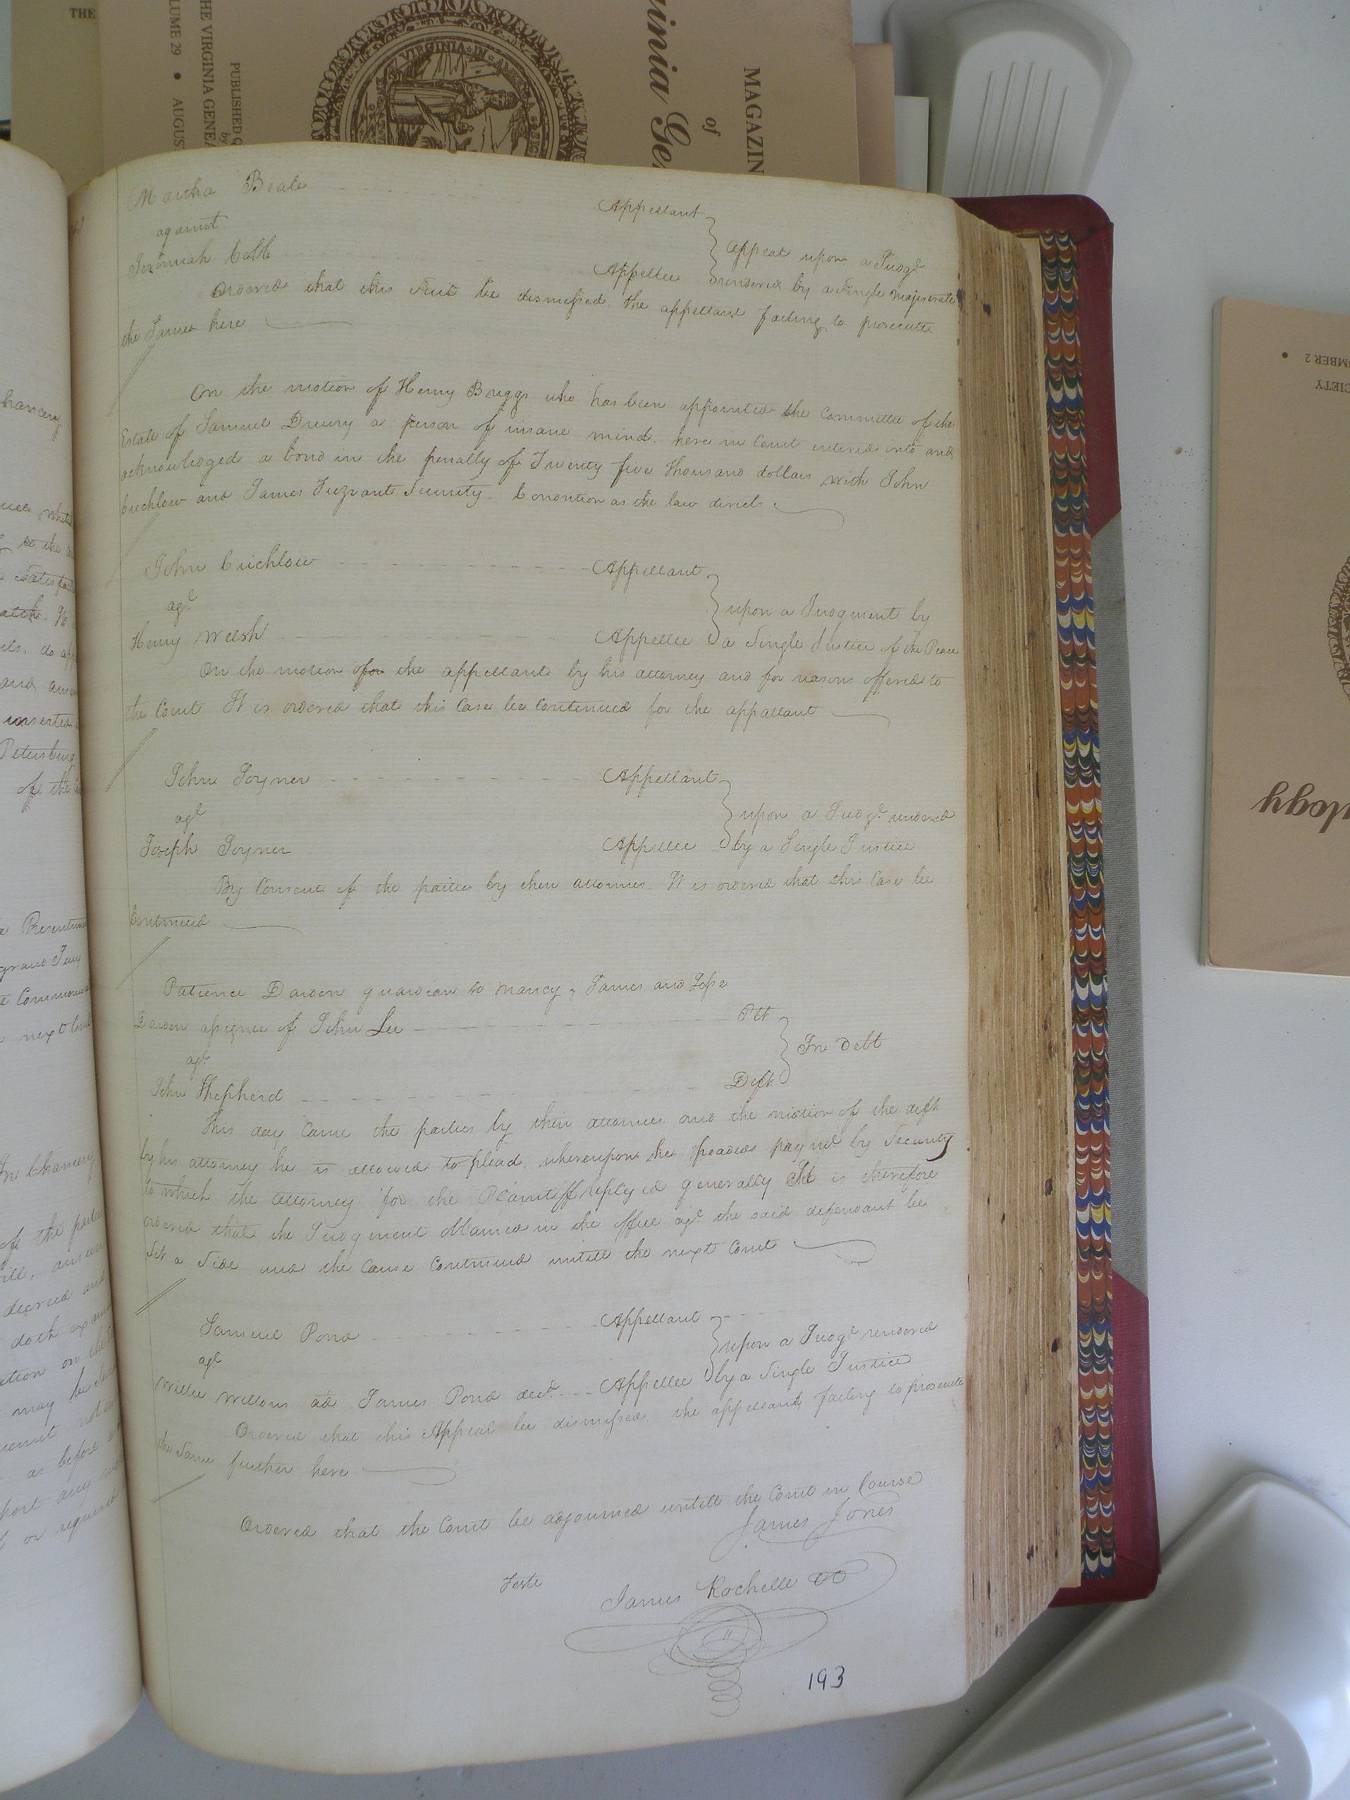 THE
THE VIRGINIA GENEA
VOLUME 29 • AUGUST
PUBLISHED Q
by
VIRGINIA IN
inia Ge
of
MAGAZIN
Martha Beale Appellant
against
Jeremiah Cobb Appellee
appeal upon a Judgt
rendered by a single majestrate
Ordered that this suit be dismissed the appellant failing to prosecute
the Same here
On the motion of Henry Briggs who has been appointed the Committee of the
Estate of Samuel Drewry a person of insane mind. here in Court entered into and
acknowledged a bond in the penalty of Twenty five thousand dollars with John
Crichlow and James Trezvant Security. Condition as the law direct
John Crichlow Appellant
agt
Henry Welsh Appellee
upon a Judgment by
a Single Justice of the Peace
On the motion of the appellant by his attorney and for reasons offered to
the Court It is ordered that this Case be Continued for the appellant
John Joyner Appellant
agt
Joseph Joyner Appellee
upon a Judgt rendered
by a Single Justice
By Consent of the parties by their attornies It is ordered that this Case be
Continued
Patience Darden guardian to Nancy, James and
Darden assignee of John Lee Plt
agt
John Shepherd Deft
In Debt
This day Came the parties by their attornies and the motion of the deft
by his attorney he is allowed to plead. whereupon he pleaded payment by Security
to which the attorney for the Plaintiff replyed generally It is therefore
ordered that the Judgment obtained in the office agt the said defendant be
Set a Side and the Cause Continued untill the next Court
Samuel Pond Appellant
agt
Willie James Pond decd Appellee
upon a Judgt rendered
by a Single Justice
Ordered that this Appeal be dismissed. the appellant failing to prosecute
the Same further here
Ordered that the Court be adjourned untill the Court in Course
James Jones
Teste
James Rochelle
193
Chancery
Petersburg
of the
In Chancery
of the parties
decreed and
may be
as before
NUMBER 2 •
CIETY
logy